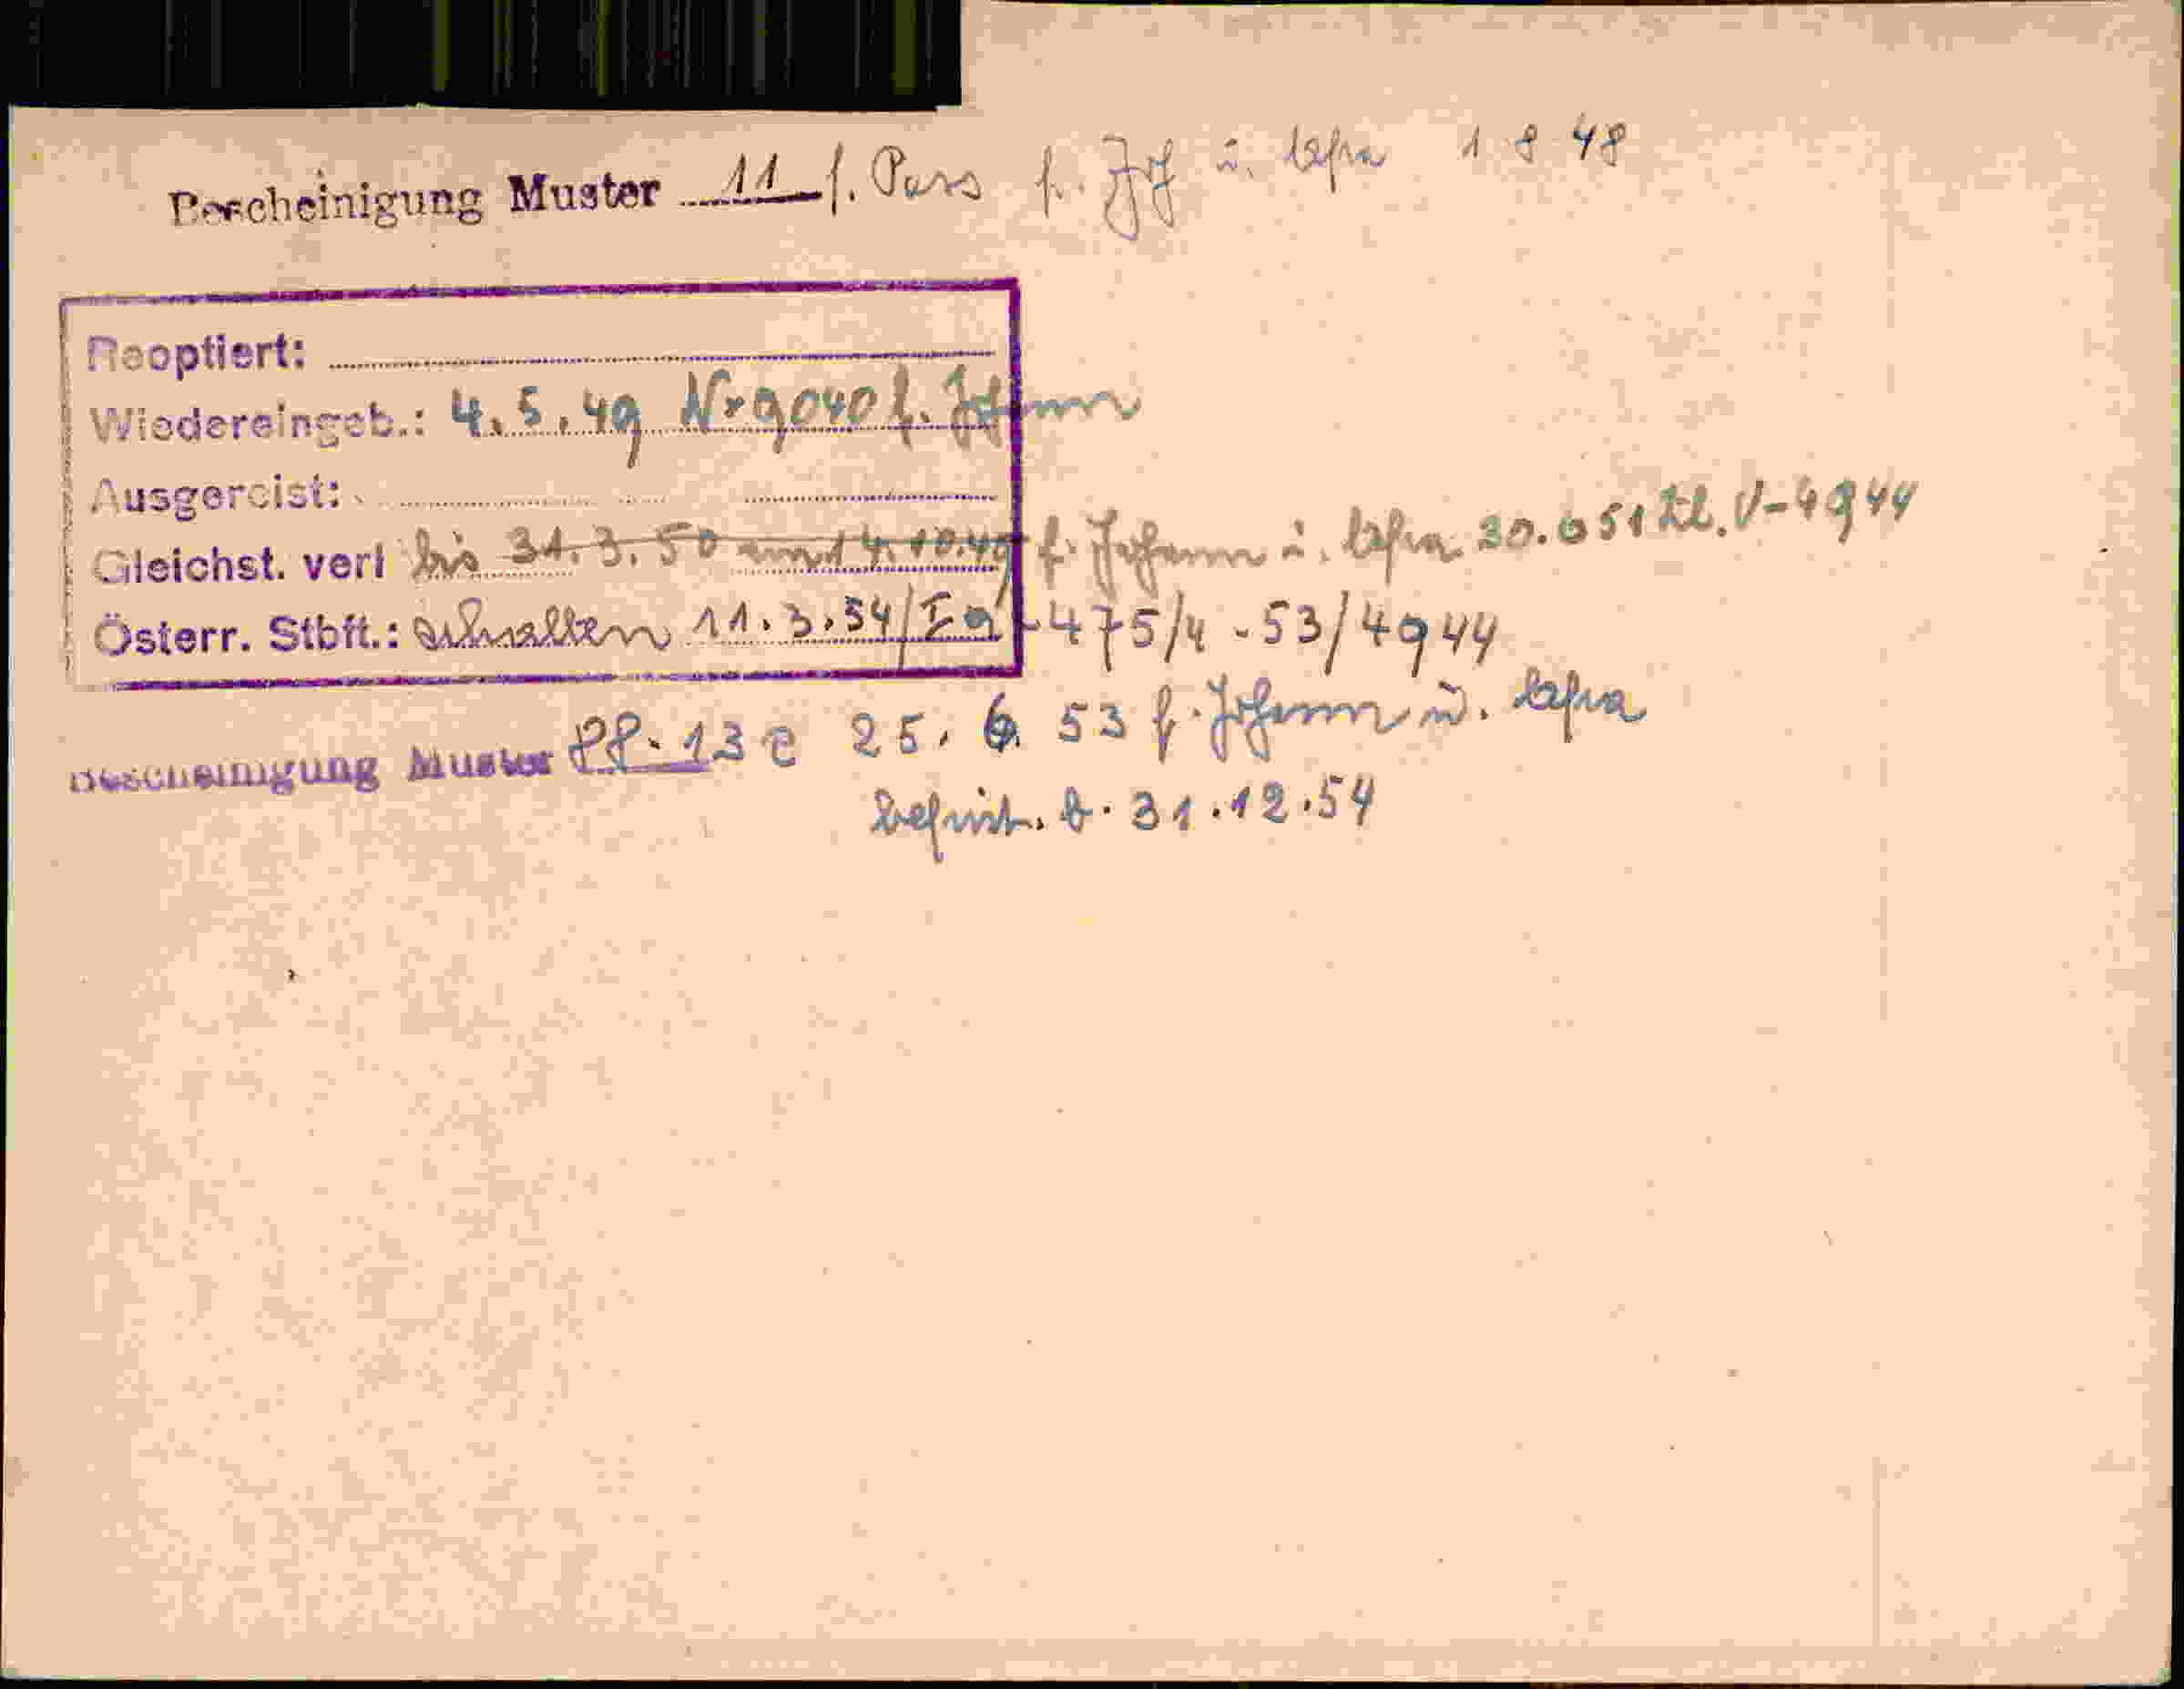 Bescheinigung Muster 11 f. Pass f. Joh u. 1 8 48
Reoptiert:
Wiedereingeb.: 4.5.49 Nr 9040 f. Johann
Ausgereist:
Gleichst. verl bis 31.3.50 am 14.10.49 f. Johann u. 30.6 51 Zl. V-4944
Österr. Stbft.: erhalten 11.3.54/Ia-475/4-53/4944
Bescheinigung Muster PP. 13 e 25. 6. 53 f. Johann u.
befrist. b. 31.12.54